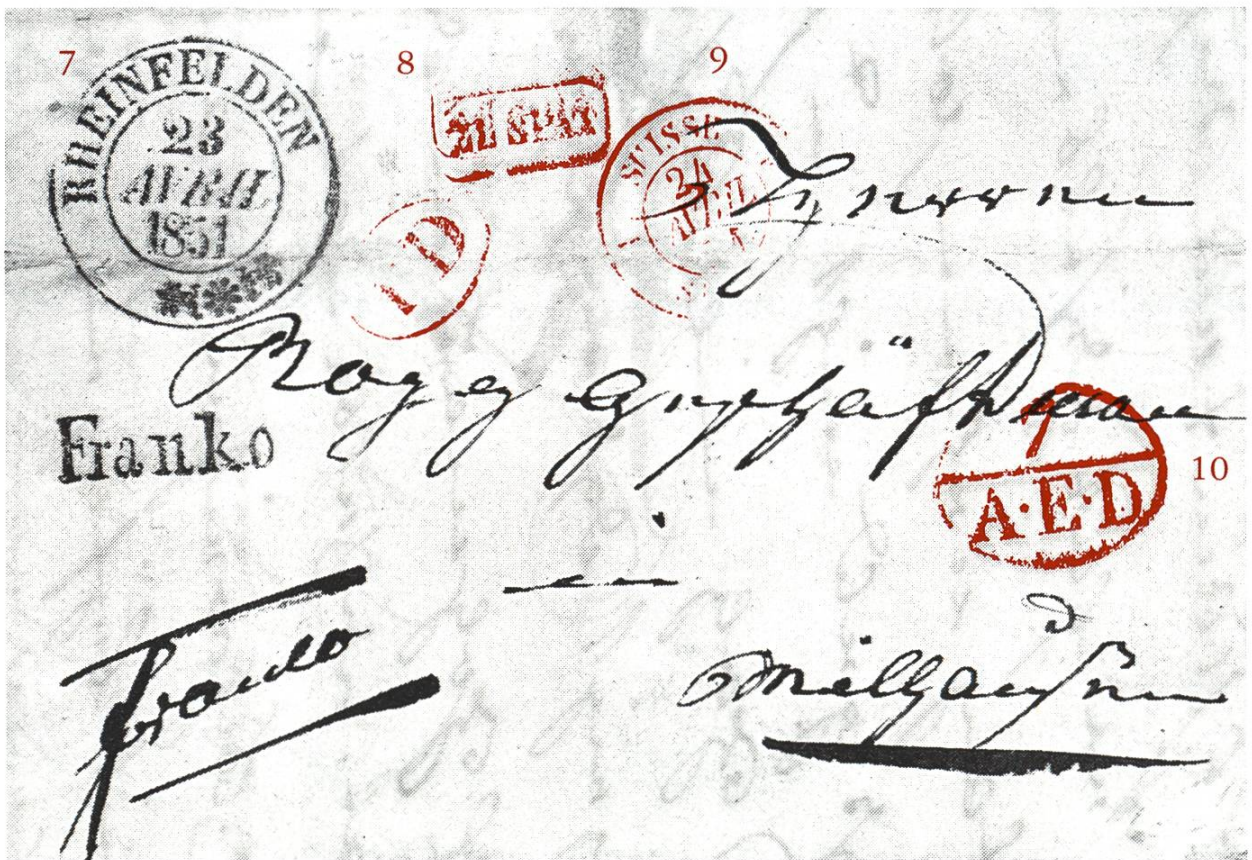 7
RHEINFELDEN
23
AVRIL
1851
8
ZU SPÄT
PD
9
SUISSE
24
AVRIL
Herren
Rogg Geschäftsman
Franko
10
A·E·D
in
franco
Mülhausen